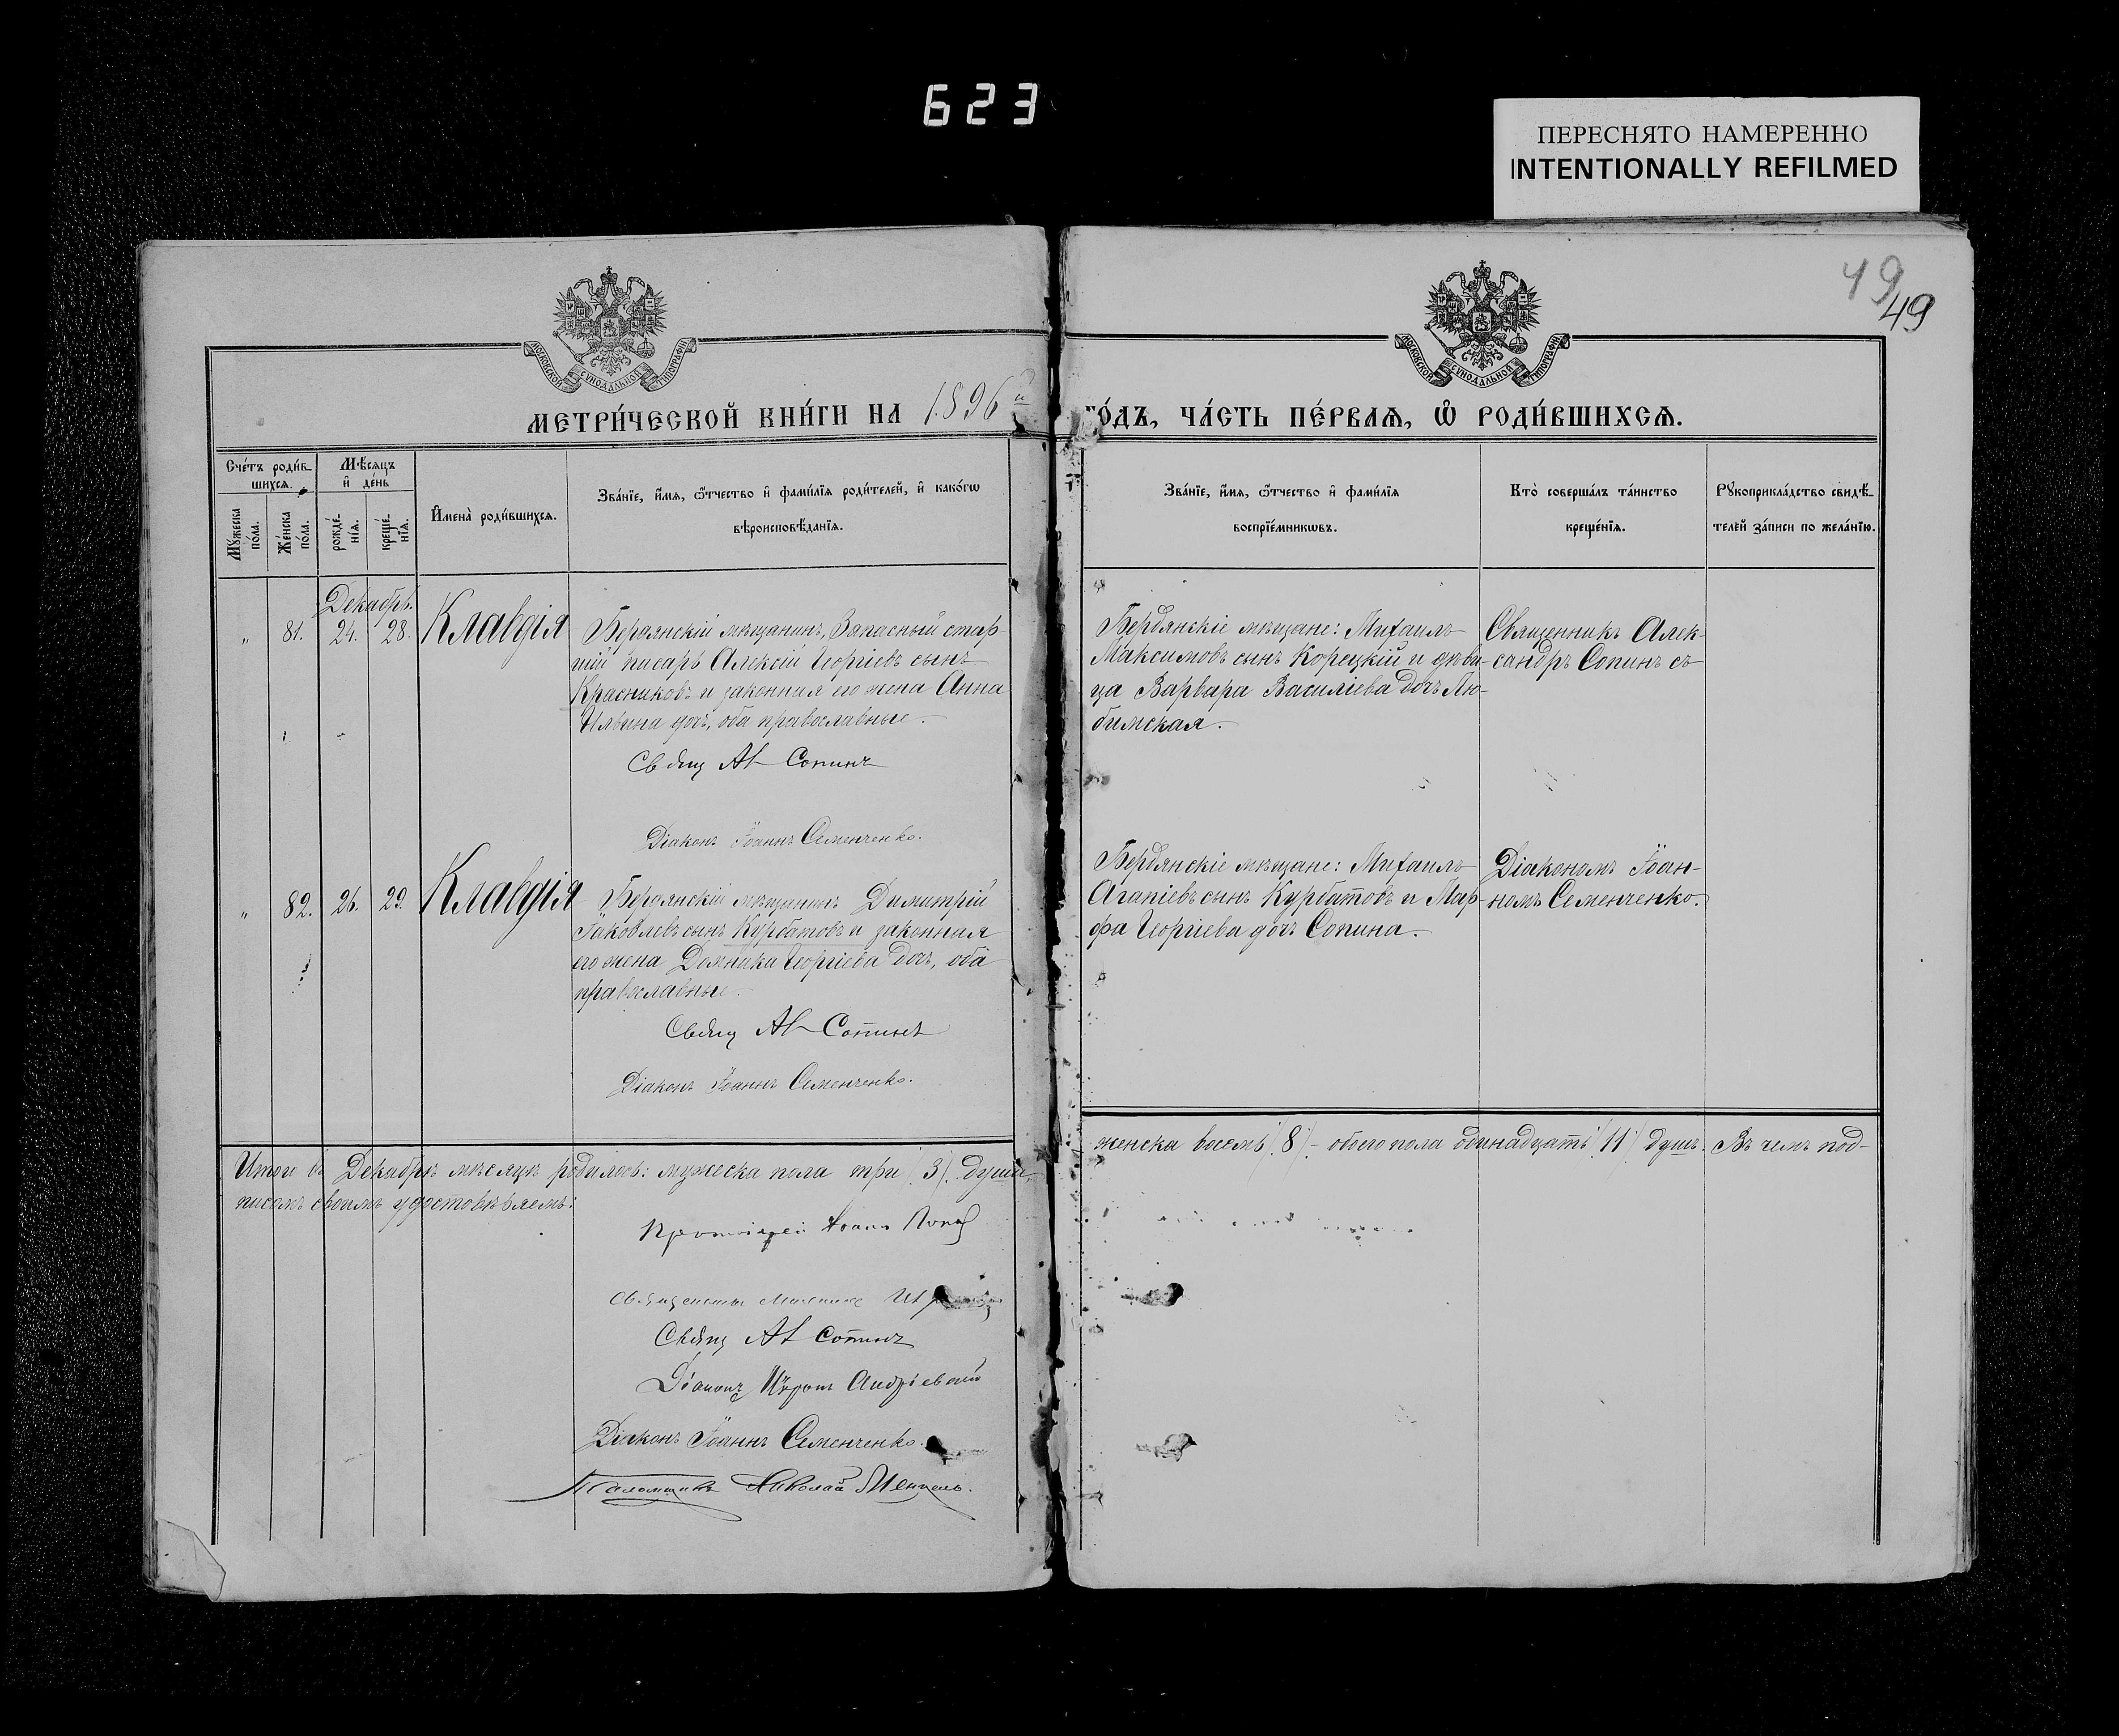 623
ПЕРЕСНЯТО НАМЕРЕННО
INTENTIONALLY REFILMED
49
49
МОСКОВСКОЙ СѴНОДАЛЬНОЙ ТИПОГРАФІИ
МОСКОВСКОЙ СѴНОДАЛЬНОЙ ТИПОГРАФІИ
МЕТРИ́ЧЕСКОЙ КНИ́ГИ НА 1896й
ГО́ДЪ, ЧА́СТЬ ПЕ́РВАѦ, Ѡ҆ РОДИ́ВШИХСѦ.
Сче́тъ роди́в-
шихсѧ.
Мꙋ́жеска по́ла.
Же́нска по́ла.
Мѣ́сѧцъ
и҆ де́нь
рожде́-
нїѧ.
креще́-
нїѧ.
И҆мена̀ роди́вшихсѧ.
Зва́нїе, и҆́мѧ, ѻ҆́тчество и҆ фами́лїѧ роди́телей, и҆ како́гѡ
вѣроисповѣ́данїѧ.
Зва́нїе, и҆́мѧ, ѻ҆́тчество и҆ фами́лїѧ
воспрїе́мникѡвъ.
Кто̀ соверша́лъ та́инство
креще́нїѧ.
Рꙋкоприкла́дство свидѣ́-
телей за́писи по жела́нїю.
Декабрь.
" 81. 24. 28. Клавдія
Бердянскій мѣщанинъ, Запасный стар-
шій писарь Алексій Георгіевъ сынъ
Красниковъ и законная его жена Анна
Ильина дочь, оба православные.
Свящ Ал Сопинъ
Діаконъ Іоаннъ Семенченко.
Бердянскіе мѣщане: Михаилъ
Максимовъ сынъ Корецкій и дѣви-
ца Варвара Василіева дочь Лю-
бимская.
Священникъ Алек-
сандръ Сопинъ съ
" 82. 26. 29. Клавдія
Бердянскій мѣщанинъ Димитрій
Іаковлевъ сынъ Курбатовъ и законная
его жена Домника Георгіева дочь, оба
православные.
Свящ Ал Сопинъ
Діаконъ Іоаннъ Семенченко.
Бердянскіе мѣщане: Михаилъ
Агапіевъ сынъ Курбатовъ и Мар-
фа Георгіева дочь Сопина.
Діакономъ Іоан-
номъ Семенченко.
Итого въ Декабрѣ мѣсяцѣ родилось: мужеска пола три /3/. души,
женска восемь /8/ - обоего пола одинадцать /11/ душъ. Въ чемъ под-
писомъ своимъ удостовѣряемъ:
Протоіерей Іоаннъ
Священникъ
Свящ Ал Сопинъ
Діаконъ Андріевскій
Діаконъ Іоаннъ Семенченко.
Псаломщикъ Николай